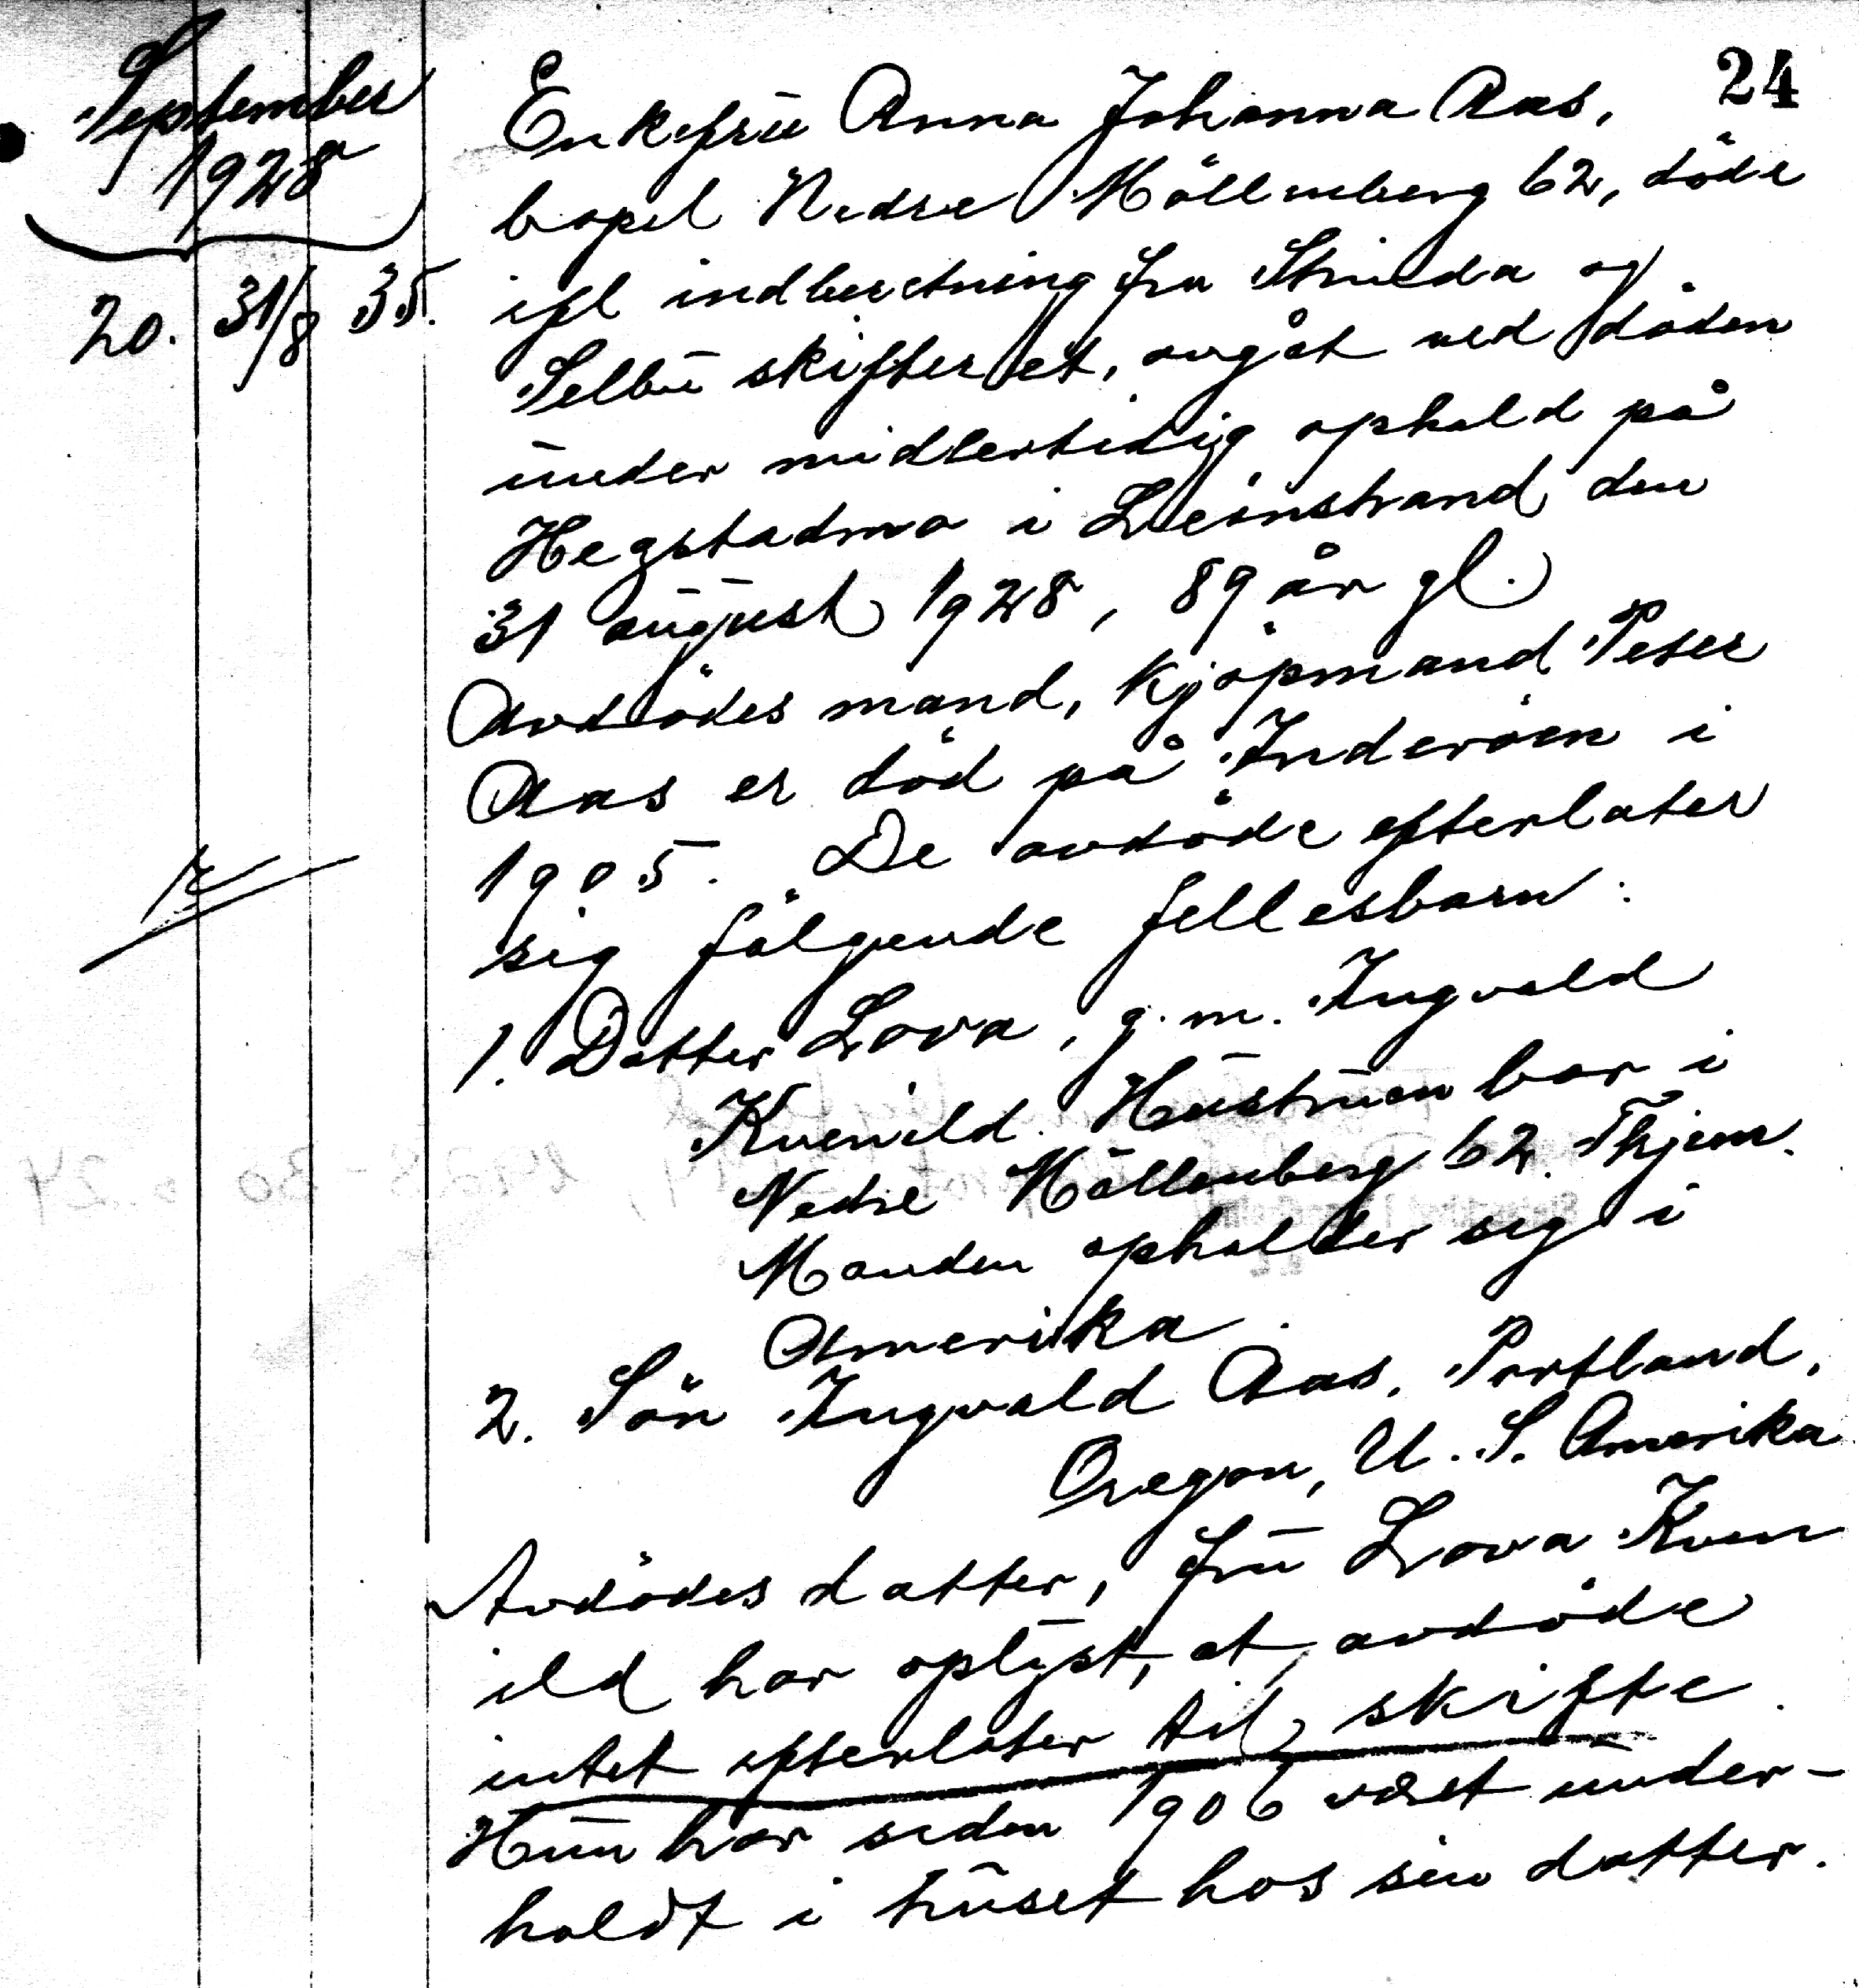 24
September
1928
20. 31/8 35.
Enkefru Anna Johanna Aas,
bopel Nedre Möllenberg 62, döde
ifl indberetning fra Strinda og
Selbu skifteret, avgåt ved döden
under midlertidig ophold på
Hegstadmo i Leinstrand den
31 august 1928, 89 år gl.
Avdödes mand, kjöpmand Peter
Aas er död på Inderöen i
1905. De avdöde efterlater
sig fölgende fellesbarn:
1. Datter Lova, g. m. Ingvald
Kvenild. Hustruen bor i
Nedre Möllenberg 62. Thjem.
Manden opholder sig i
Amerika.
2. Sön Ingvald Aas, Portland,
Oregon, U. S. Amerika
Avdödes datter, fru Lova Kven
ild har oplyst, at avdöde
intet efterlater til skifte.
Hun har siden 1906 været under-
holdt i huset hos sin datter.